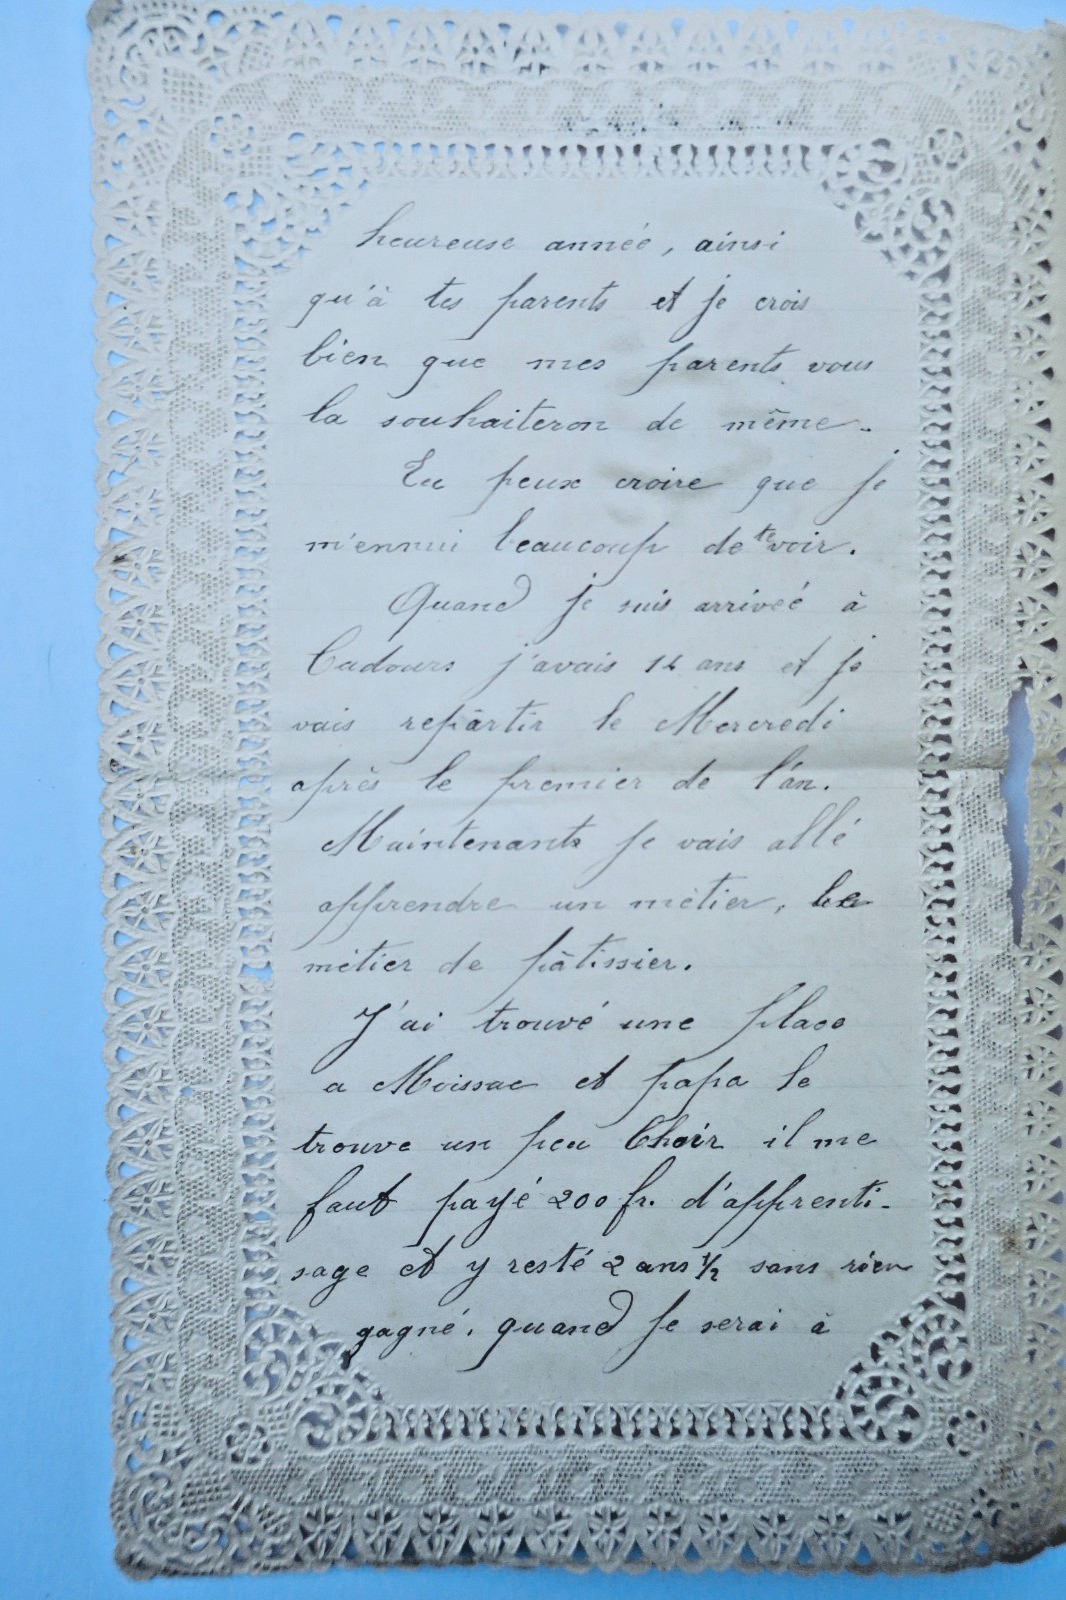 heureuse année, ainsi
qu'à tes parents et je crois
bien que mes parents vous
la souhaiteron de même.
Tu peux croire que je
m'ennui beaucoup de te voir.
Quand je suis arriveé à
Cadours j'avais 12 ans et je
vais repârtir le Mercredi
après le premier de l'an.
Maintenants je vais allé
apprendre un métier, le
métier de pâtissier.
J'ai trouvé une place
a Moissac et papa le
trouve un peu Choir il me
faut payé 200 fr. d'apprenti-
sage et y resté 2 ans ½ sans rien
gagné. quand je serai à